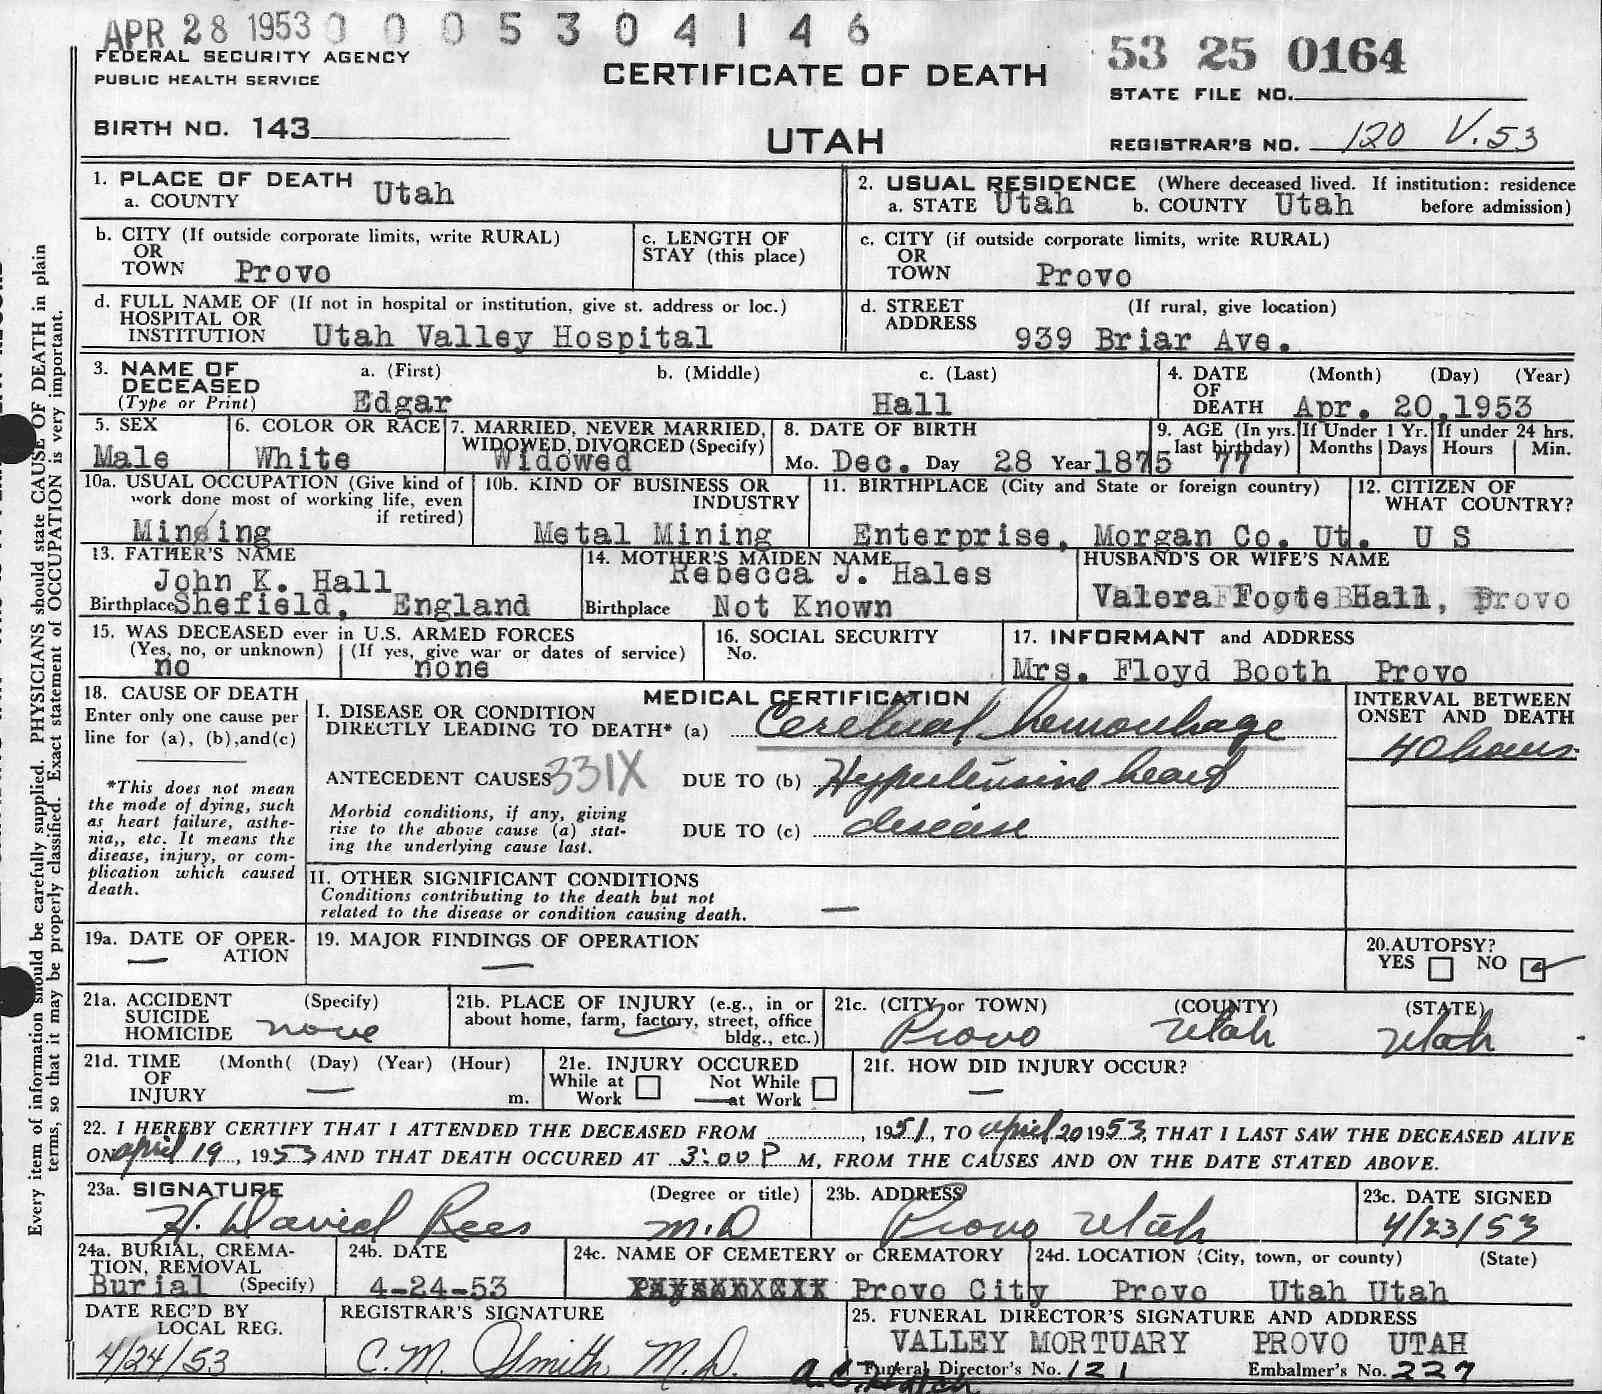 APR 28 1953 0 0 0 5 3 0 4 1 4 6
FEDERAL SECURITY AGENCY
PUBLIC HEALTH SERVICE
CERTIFICATE OF DEATH
53 25 0164
STATE FILE NO.
BIRTH NO. 143
UTAH
REGISTRAR'S NO. 120 V.53
1. PLACE OF DEATH
a. COUNTY Utah
2. USUAL RESIDENCE (Where deceased lived. If institution: residence
a. STATE Utah b. COUNTY Utah before admission)
b. CITY (If outside corporate limits, write RURAL)
OR
TOWN Provo
c. LENGTH OF
STAY (this place)
c. CITY (if outside corporate limits, write RURAL)
OR
TOWN Provo
d. FULL NAME OF (If not in hospital or institution, give st. address or loc.)
HOSPITAL OR
INSTITUTION Utah Valley Hospital
d. STREET (If rural, give location)
ADDRESS
939 Briar Ave.
3. NAME OF a. (First) b. (Middle) c. (Last)
DECEASED
(Type or Print) Edgar Hall
4. DATE (Month) (Day) (Year)
OF
DEATH Apr. 20,1953
5. SEX
Male
6. COLOR OR RACE
White
7. MARRIED, NEVER MARRIED,
WIDOWED, DIVORCED (Specify)
Widowed
8. DATE OF BIRTH
Mo. Dec. Day 28 Year 1875
9. AGE (In yrs.
last birthday) 77
If Under 1 Yr.
Months Days
If under 24 hrs.
Hours Min.
10a. USUAL OCCUPATION (Give kind of
work done most of working life, even
if retired)
Mining
10b. KIND OF BUSINESS OR
INDUSTRY
Metal Mining
11. BIRTHPLACE (City and State or foreign country)
Enterprise, Morgan Co. Ut.
12. CITIZEN OF
WHAT COUNTRY?
U S
13. FATHER'S NAME
John K. Hall
Birthplace Shefield, England
14. MOTHER'S MAIDEN NAME
Rebecca J. Hales
Birthplace Not Known
HUSBAND'S OR WIFE'S NAME
Valera Foote Hall, Provo
15. WAS DECEASED ever in U.S. ARMED FORCES
(Yes, no, or unknown) (If yes, give war or dates of service)
no none
16. SOCIAL SECURITY
No.
17. INFORMANT and ADDRESS
Mrs. Floyd Booth Provo
18. CAUSE OF DEATH
Enter only one cause per
line for (a), (b),and(c)
*This does not mean
the mode of dying, such
as heart failure, asthe-
nia,, etc. It means the
disease, injury, or com-
plication which caused
death.
MEDICAL CERTIFICATION
I. DISEASE OR CONDITION
DIRECTLY LEADING TO DEATH* (a) Cerebral hemorrhage
ANTECEDENT CAUSES 331X DUE TO (b) Hypertensive heart
Morbid conditions, if any, giving
rise to the above cause (a) stat-
ing the underlying cause last.
DUE TO (c) disease
INTERVAL BETWEEN
ONSET AND DEATH
40 hours
II. OTHER SIGNIFICANT CONDITIONS
Conditions contributing to the death but not
related to the disease or condition causing death. —
19a. DATE OF OPER-
ATION
—
19. MAJOR FINDINGS OF OPERATION
—
20.AUTOPSY?
YES ☐ NO ☑
21a. ACCIDENT (Specify)
SUICIDE
HOMICIDE none
21b. PLACE OF INJURY (e.g., in or
about home, farm, factory, street, office
bldg., etc.)
21c. (CITY or TOWN) (COUNTY) (STATE)
Provo Utah Utah
21d. TIME (Month( (Day) (Year) (Hour)
OF
INJURY — m.
21e. INJURY OCCURED
While at Not While
Work ☐ at Work ☐
21f. HOW DID INJURY OCCUR?
—
22. I HEREBY CERTIFY THAT I ATTENDED THE DECEASED FROM ............, 1951, TO april 20 1953, THAT I LAST SAW THE DECEASED ALIVE
ON april 19, 1953 AND THAT DEATH OCCURED AT 3:00 P M, FROM THE CAUSES AND ON THE DATE STATED ABOVE.
23a. SIGNATURE (Degree or title)
H. David Rees M.D
23b. ADDRESS
Provo Utah
23c. DATE SIGNED
4/23/53
24a. BURIAL, CREMA-
TION, REMOVAL
Burial (Specify)
24b. DATE
4-24-53
24c. NAME OF CEMETERY or CREMATORY
Provo City
24d. LOCATION (City, town, or county) (State)
Provo Utah Utah
DATE REC'D BY
LOCAL REG.
4/24/53
REGISTRAR'S SIGNATURE
C.M. Smith, M.D.
25. FUNERAL DIRECTOR'S SIGNATURE AND ADDRESS
VALLEY MORTUARY PROVO UTAH
Funeral Director's No. 121 Embalmer's No. 227
Every item of information should be carefully supplied. PHYSICIANS should state CAUSE OF DEATH in plain
terms, so that it may be properly classified. Exact statement of OCCUPATION is very important.